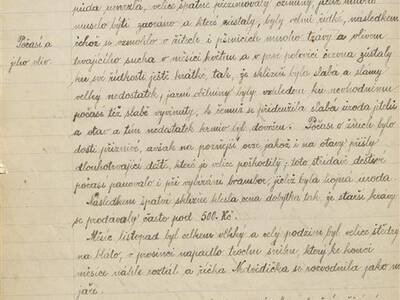 půda umrzla, velice špatně přezimovaly oziminy, jichž mnoho
muselo býti zaoráno a které zůstaly, byly velmi řídké, následkem
čehož se rozmohlo v žitech i pšenicích mnoho travy a vlivem
Počasí a trvajícího sucha v měsíci květnu a v prvé polovici června zůstaly
jeho vliv. ku své řídkosti ještě krátké, tak, že sklizeň byla slabá a slámy
velký nedostatek; jarní obilniny byly vzhledem ku nevhodnému
počasí též slabě vyvinuty, k čemuž se přidružila slabá úroda jetelů
a otav a tím nedostatek krmiv byl dovršen. Počasí o žních bylo
dosti příznivé, avšak na pozdější orze jakož i na otavy přišly
dlouhotrvající deště, které je velice poškodily; toto střídavé deštivé
počasí panovalo i při vybírání brambor, jichž byla hojná úroda.
Následkem špatné sklizně klesla cena dobytka tak, že starší krávy
se prodávaly často pod 500 Kč.
Měsíc listopad byl celkem vlhký a celý podzim byl velice štědrý
na bláto, v prosinci napadlo trochu sněhu, který ke konci
měsíce náhle roztál a říčka Mdzidička se rozvodnila jako na
jaře.